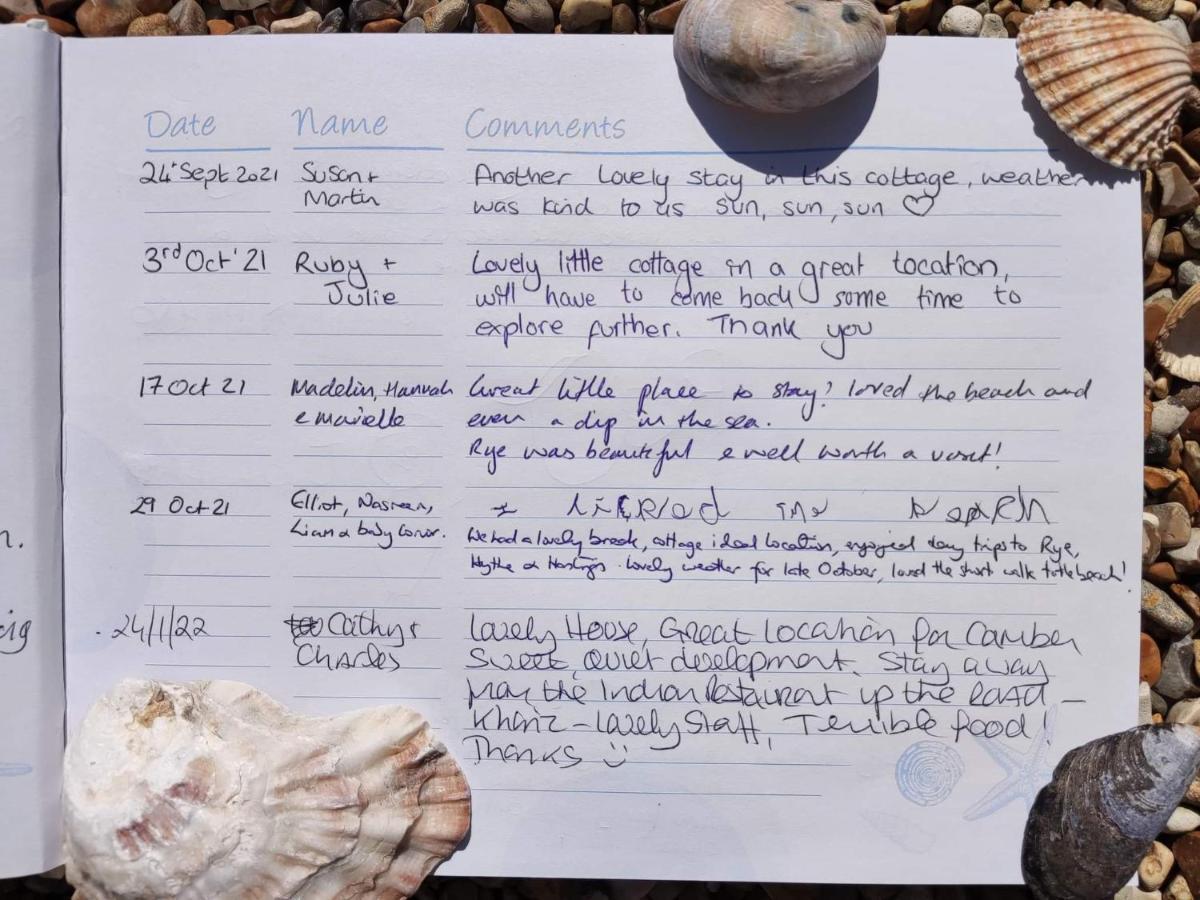 Date Name Comments
24 Sept 2021 Susan + Another lovely stay in this cottage, weather
Martin was kind to us sun, sun, sun ♡
3rd Oct '21 Ruby + Lovely little cottage in a great location,
Julie will have to come back some time to
explore further. Thank you
17 Oct 21 Madelin, Hannah Great little place to stay! Loved the beach and
& Marielle even a dip in the sea.
Rye was beautiful & well worth a visit!
29 Oct 21 Elliot, Nasreen, I the
Liam & baby Conor. We had a lovely break, cottage ideal location, enjoyed day trips to Rye,
Hythe & Hastings. Lovely weather for late October, loved the short walk to the beach!
24/1/22 Cathy & Lovely House, Great Location for Camber
Charles Sweet, quiet development. Stay away
n. from the Indian Restaurant up the road –
– Lovely Staff, Terrible food!
Thanks